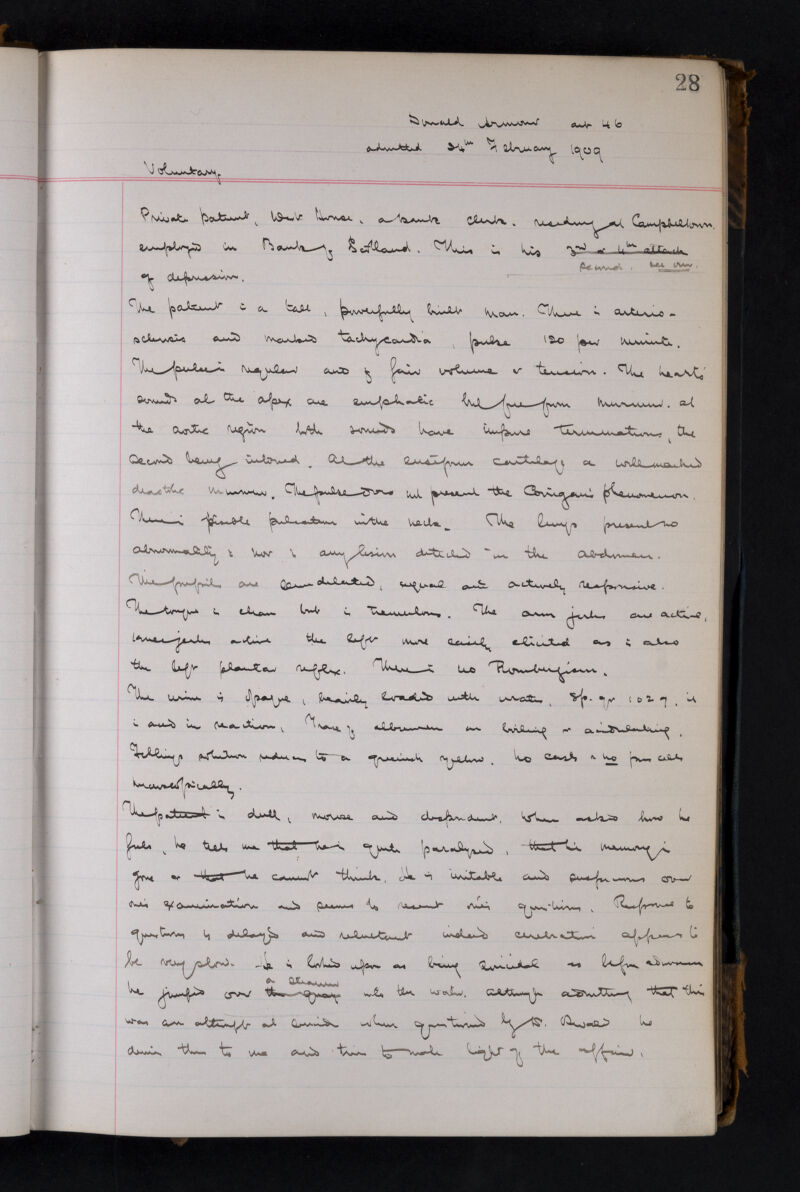 28
Donald Armour aet 46
admitted 24th February 1909
Voluntary.
Private patient, West House, a bank clerk. residing at Campbeltown.
employed in Bank of Scotland. This is his 3rd or 4th attack
second.
of depression.
The patient is a tall, powerfully built man. There is arterio-
sclerosis and marked tachycardia, pulse 120 per minute.
The pulse is regular and of fair volume & tension. The heart's
sounds at the apex are emphatic but free from murmur. at
the aortic region both sounds have impure terminations, the
second being intoned. At the ensiform cartilage a well marked
diastolic murmur. The pulse does not present the Corrigan's phenomenon.
There is visible pulsation in the neck. The lungs present no
abnormality & nor is any lesion detected in the abdomen.
The pupils are dilated, equal and actively responsive.
The tongue is clean but is tremulous. The arm jerks are active,
knee jerks active the left more easily elicited as is also
the left plantar reflex. There is no Rombergism.
The urine is opaque, heavily loaded with urates, Sp. gr 1029, it
is acid in reaction, trace of albumen on boiling &
Fehlings solution reduces to a greenish yellow. No casts & no pus cells
microscopically.
The patient is dull, morose and despondent. When asked how he
feels, he tells me that he is quite paralysed, that his memory is
gone or that he cannot think. He is irritable and suspicious over
one's examination and seems to resent one's questions. Response to
questions is delayed and reluctant indeed cerebration appears to
be very slow. He is looked upon as being suicidal as before admission
a steamer
he jumped over the quay into the water. Although admitting that this
was an attempt at suicide when questioned by Dr. he
denies this to me and tries to make light of the affair.